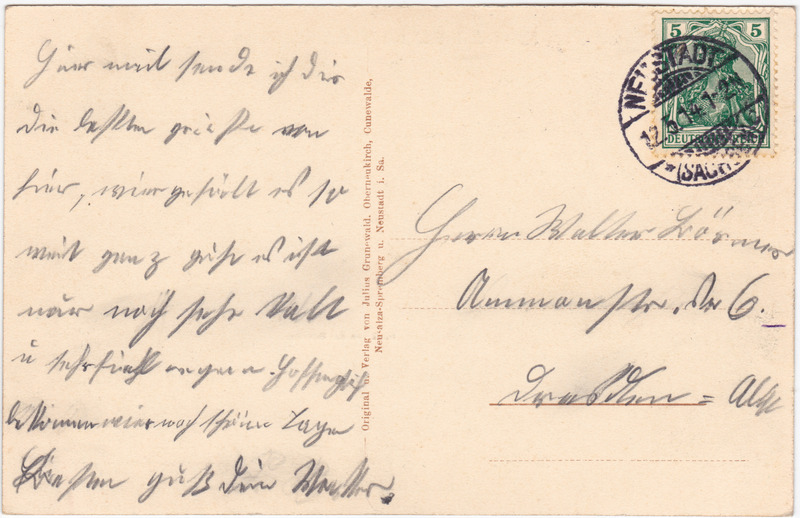 Hier mit sende ich dir
die besten grüße von
hier, wier gefält es so
weit ganz gut es ist
nur noch sehr kalt
u sehr fiehl regen. Hoffentlich
bekomen wier noch schöne Tage
Besten gruß dein Walter.
Original u. Verlag von Julius Grunewald, Oberneukirch, Cunewalde,
Neusalza-Spremberg u. Neustadt i. Sa.
5 5
DEUTSCHES REICH
NEUSTADT
12.5.14.1-2N
*(SACHSEN)
Herrn Walter Börner
Ammonstr. Nr 6.
Dresden = Alt